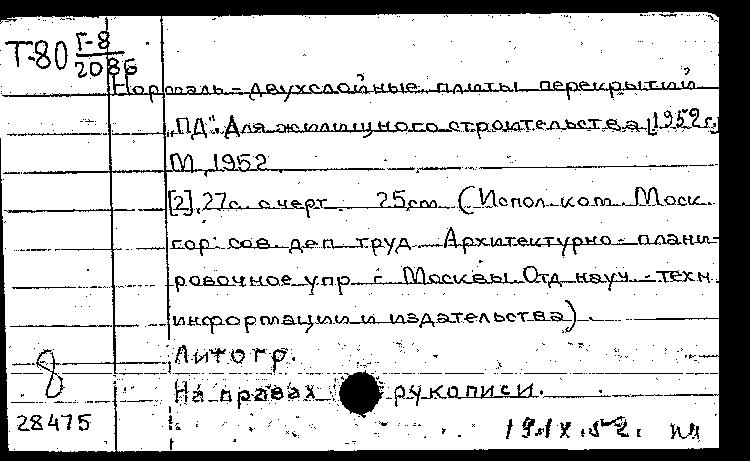 Т-80 Г-8
2086
Нормаль - двухслойные плиты перекрытий
„ПД". Для жилищного строительства [1952 г.]
М, 1952
[2], 27с. с черт. 25cm (Испол. ком. Моск.
гор. сов. деп. труд. Архитектурно - плани-
ровочное упр. г. Москвы. Отд. науч. - техн.
информации и издательства).
Литогр.
8
На правах рукописи.
28475
19.IX.52.